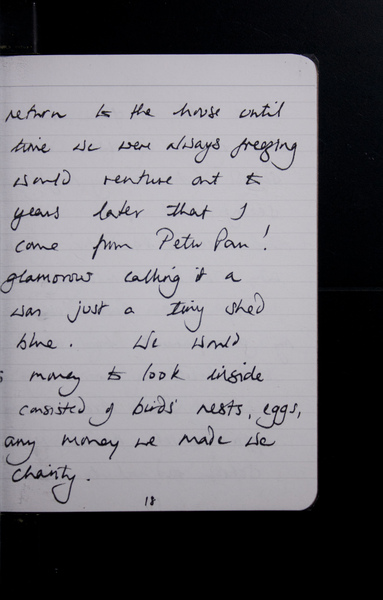 return to the house until
time we were always freezing
would venture out to
years later that I
came from Peter Pan!
glamorous calling it a
was just a tiny shed
blue. We would
money to look inside
consisted of birds' nests, eggs,
any money we made we
charity.
18